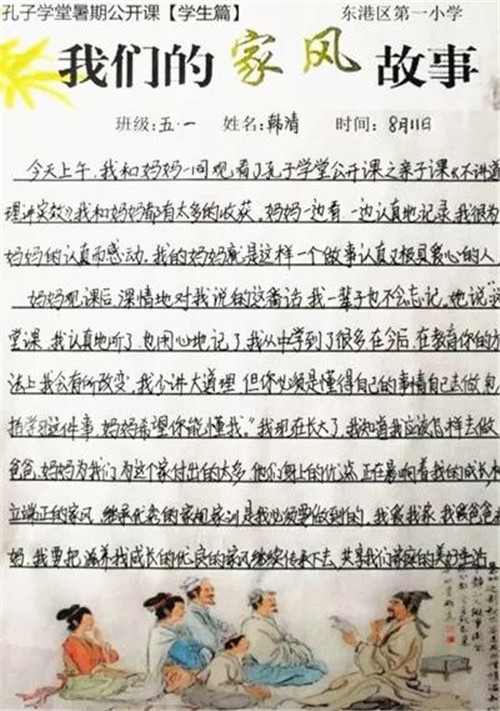 孔子学堂暑期公开课【学生篇】 东港区第一小学
我们的家风故事
班级:五·一 姓名:韩清 时间: 8月11日
今天上午,我和妈妈一同观看了孔子学堂公开课之亲子课《不讲道
理讲实效》我和妈妈都有太多的收获。妈妈一边看一边认真地记录,我很为
妈妈的认真而感动。我的妈妈就是这样一个做事认真又极具爱心的人
妈妈观课后,深情地对我说的这番话,我一辈子也不会忘记。她说
堂课,我认真地听了,也用心地记了,我从中学到了很多在今后,在教育你的方
法上我会有所改变,我少讲大道理,但你必须是懂得自己的事情自己去做,包
括学习这件事,妈妈希望你能懂我。"我现在长大了,我知道我应该怎样去做
爸爸、妈妈为我们,为这个家付出的太多,他们身上的优点,正在影响着我的成长,
立端正的家风,继承优秀的家规家训是我必须要做到的。我爱我家,我爱爸爸
妈。我要把滋养我成长的优良的家风继续传承下去,共享我们家的美好生活